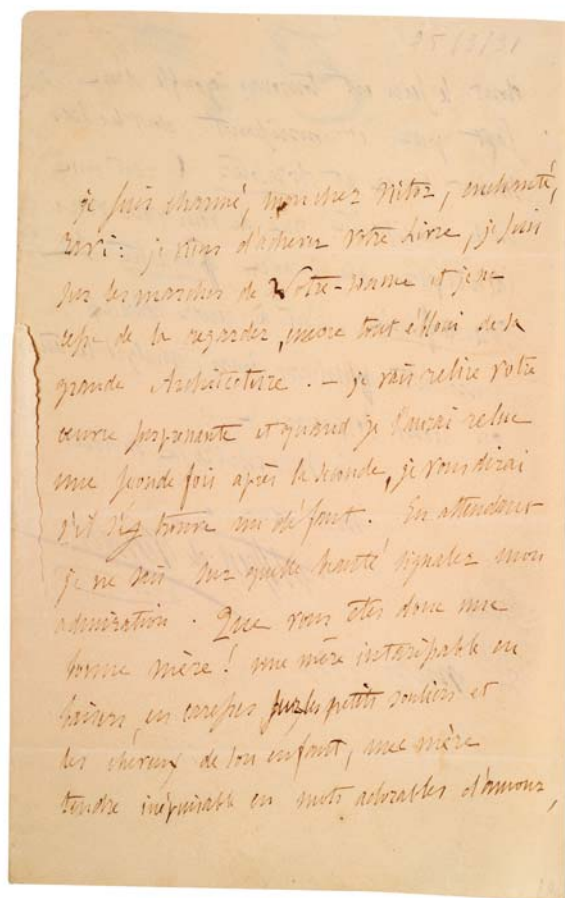 je suis charmé, mon cher Victor, enchanté,
ravi : je viens d'achever votre Livre, je suis
sur les marches de Notre-Dame et je ne
cesse de la regarder, encore tout ébloui de sa
grande Architecture. – je vais relire votre
œuvre surprenante et quand je l'aurai relue
une seconde fois après la seconde, je vous dirai
s'il s'y trouve un défaut. En attendant
je ne sais sur quelle beauté signaler mon
admiration. Que vous êtes donc une
bonne mère ! une mère intarissable en
baisers, en caresses sur les petits souliers et
les cheveux de son enfant, une mère
tendre inépuisable en mots adorables d'amour,